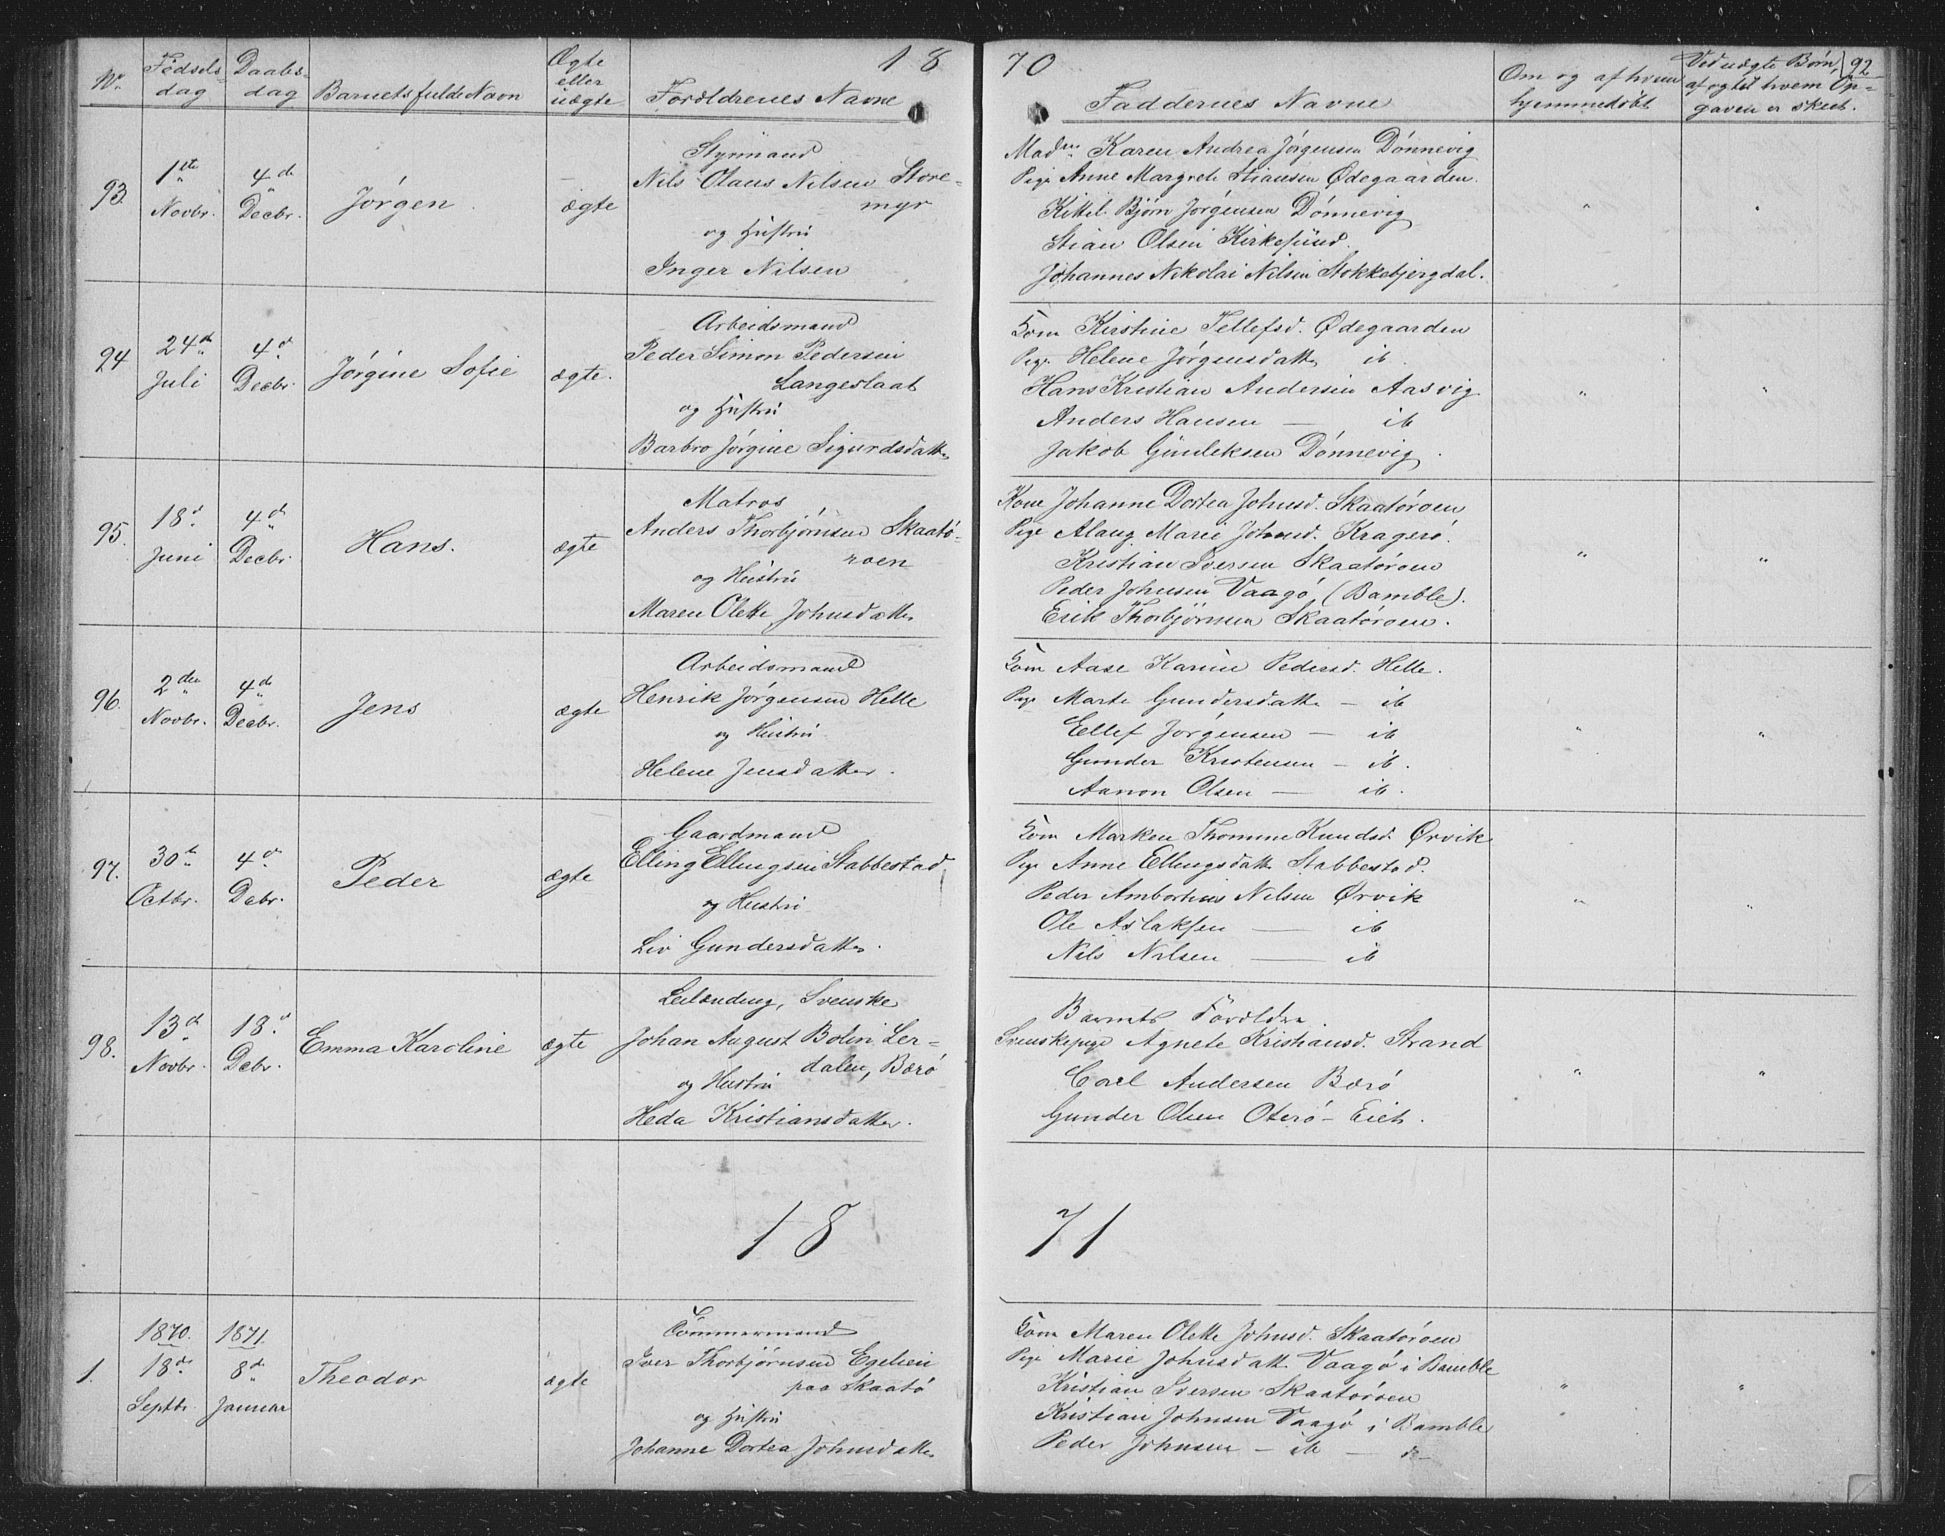 18 70
92
No.
Fødsels-
dag
Daabs-
dag
Barnets fulde Navn
Ægte
eller
uægte
Forældrenes Navne
Faddernes Navne
Om og af hvem
hjemmedøbt
Ved uægte Børn,
af og til hvem Op-
gaven er skeet.
93.
1ste
Novbr.
4de
Decbr.
Jørgen
ægte
Styrmand
Nils Olaus Nilsen Store-
myr
og Hustru
Inger Nilsen
Madm. Karen Andrea Jørgensen Dønnevig
Pige Anne Margrete Stiansen Ødegaarden.
Kittil Bjørn Jørgensen Dønnevig
Stian Olsen Kirkesund.
Johannes Nikolai Nilsen Stokkebjergdal.
94
24d
Juli
4d
Decbr.
Jørgine Sofie
ægte.
Arbeidsmand
Peder Simon Pedersen
Langeslaat
og Hustru
Barbro Jørgine Sigurdsdatter
Kone Kirstine Tellefsd. Ødegaarden
Pige Helene Jørgensdatter ib
Hans Kristian Andersen Aasvig
Anders Hansen — ib
Jakob Gunleksen Dønnevig.
95.
18d
Juni
4d
Decbr.
Hans.
ægte
Matros
Anders Thorbjørnsen Skaatø-
roen
og Hustru
Maren Olette Johnsdatter
Kone Johanne Dortea Johnsd. Skaatøroen
Pige Alaug Marie Johnsd. Kragerø.
Kristian Iversen Skaatøroen
Peder Johnsen Vaagø (Bamble).
Erik Thorbjørnsen Skaatøroen.
96.
2den
Novbr.
4de
Decbr.
Jens
ægte
Arbeidsmand
Henrik Jørgensen Helle
og Hustru
Helene Jensdatter.
Kone Aase Karine Pedersd. Helle.
Pige Marte Gundersdatter — ib
Ellef Jørgensen — ib
Gunder Kristensen — ib.
Aanon Olsen — ib.
97.
30te
Octbr.
4d
Debr.
Peder
ægte
Gaardmand
Elling Ellingsen Stabbestad
og Hustru
Liv Gundersdatter.
Kone Marken Thomine Knudsd. Ørvik
Pige Anne Ellingsdatter Stabbestad.
Peder Ambortius Nilsen Ørvik
Ole Aslaksen — ib
Nils Nilsen — ib
98.
13d
Novbr.
18d
Debr.
Emma Karoline
ægte
Leilænding, Svenske
Johan August Bolin Ler-
dalen, Bærø
og Hustru
Heda Kristiansdatter.
Barnets Forældre.
Svenskepige Agnete Kristiansd. Strand
Carl Andersen Bærø
Gunder Olsen Oterø-Eiet.
18 71
1.
1870.
18de
Septbr.
1871.
8de
Januar
Theodor
ægte
Tømmermand
Iver Thorbjørnsen Egelien
paa Skaatø
og Hustru
Johanne Dortea Johnsdatter
Kone Maren Olette Johnsd. Skaatøroen
Pige Marie Johnsdatter Vaagø i Bamble
Kristian Iversen Skaatøroen
Kristian Johnsen Vaagø i Bamble
Peder Johnsen — ib — do